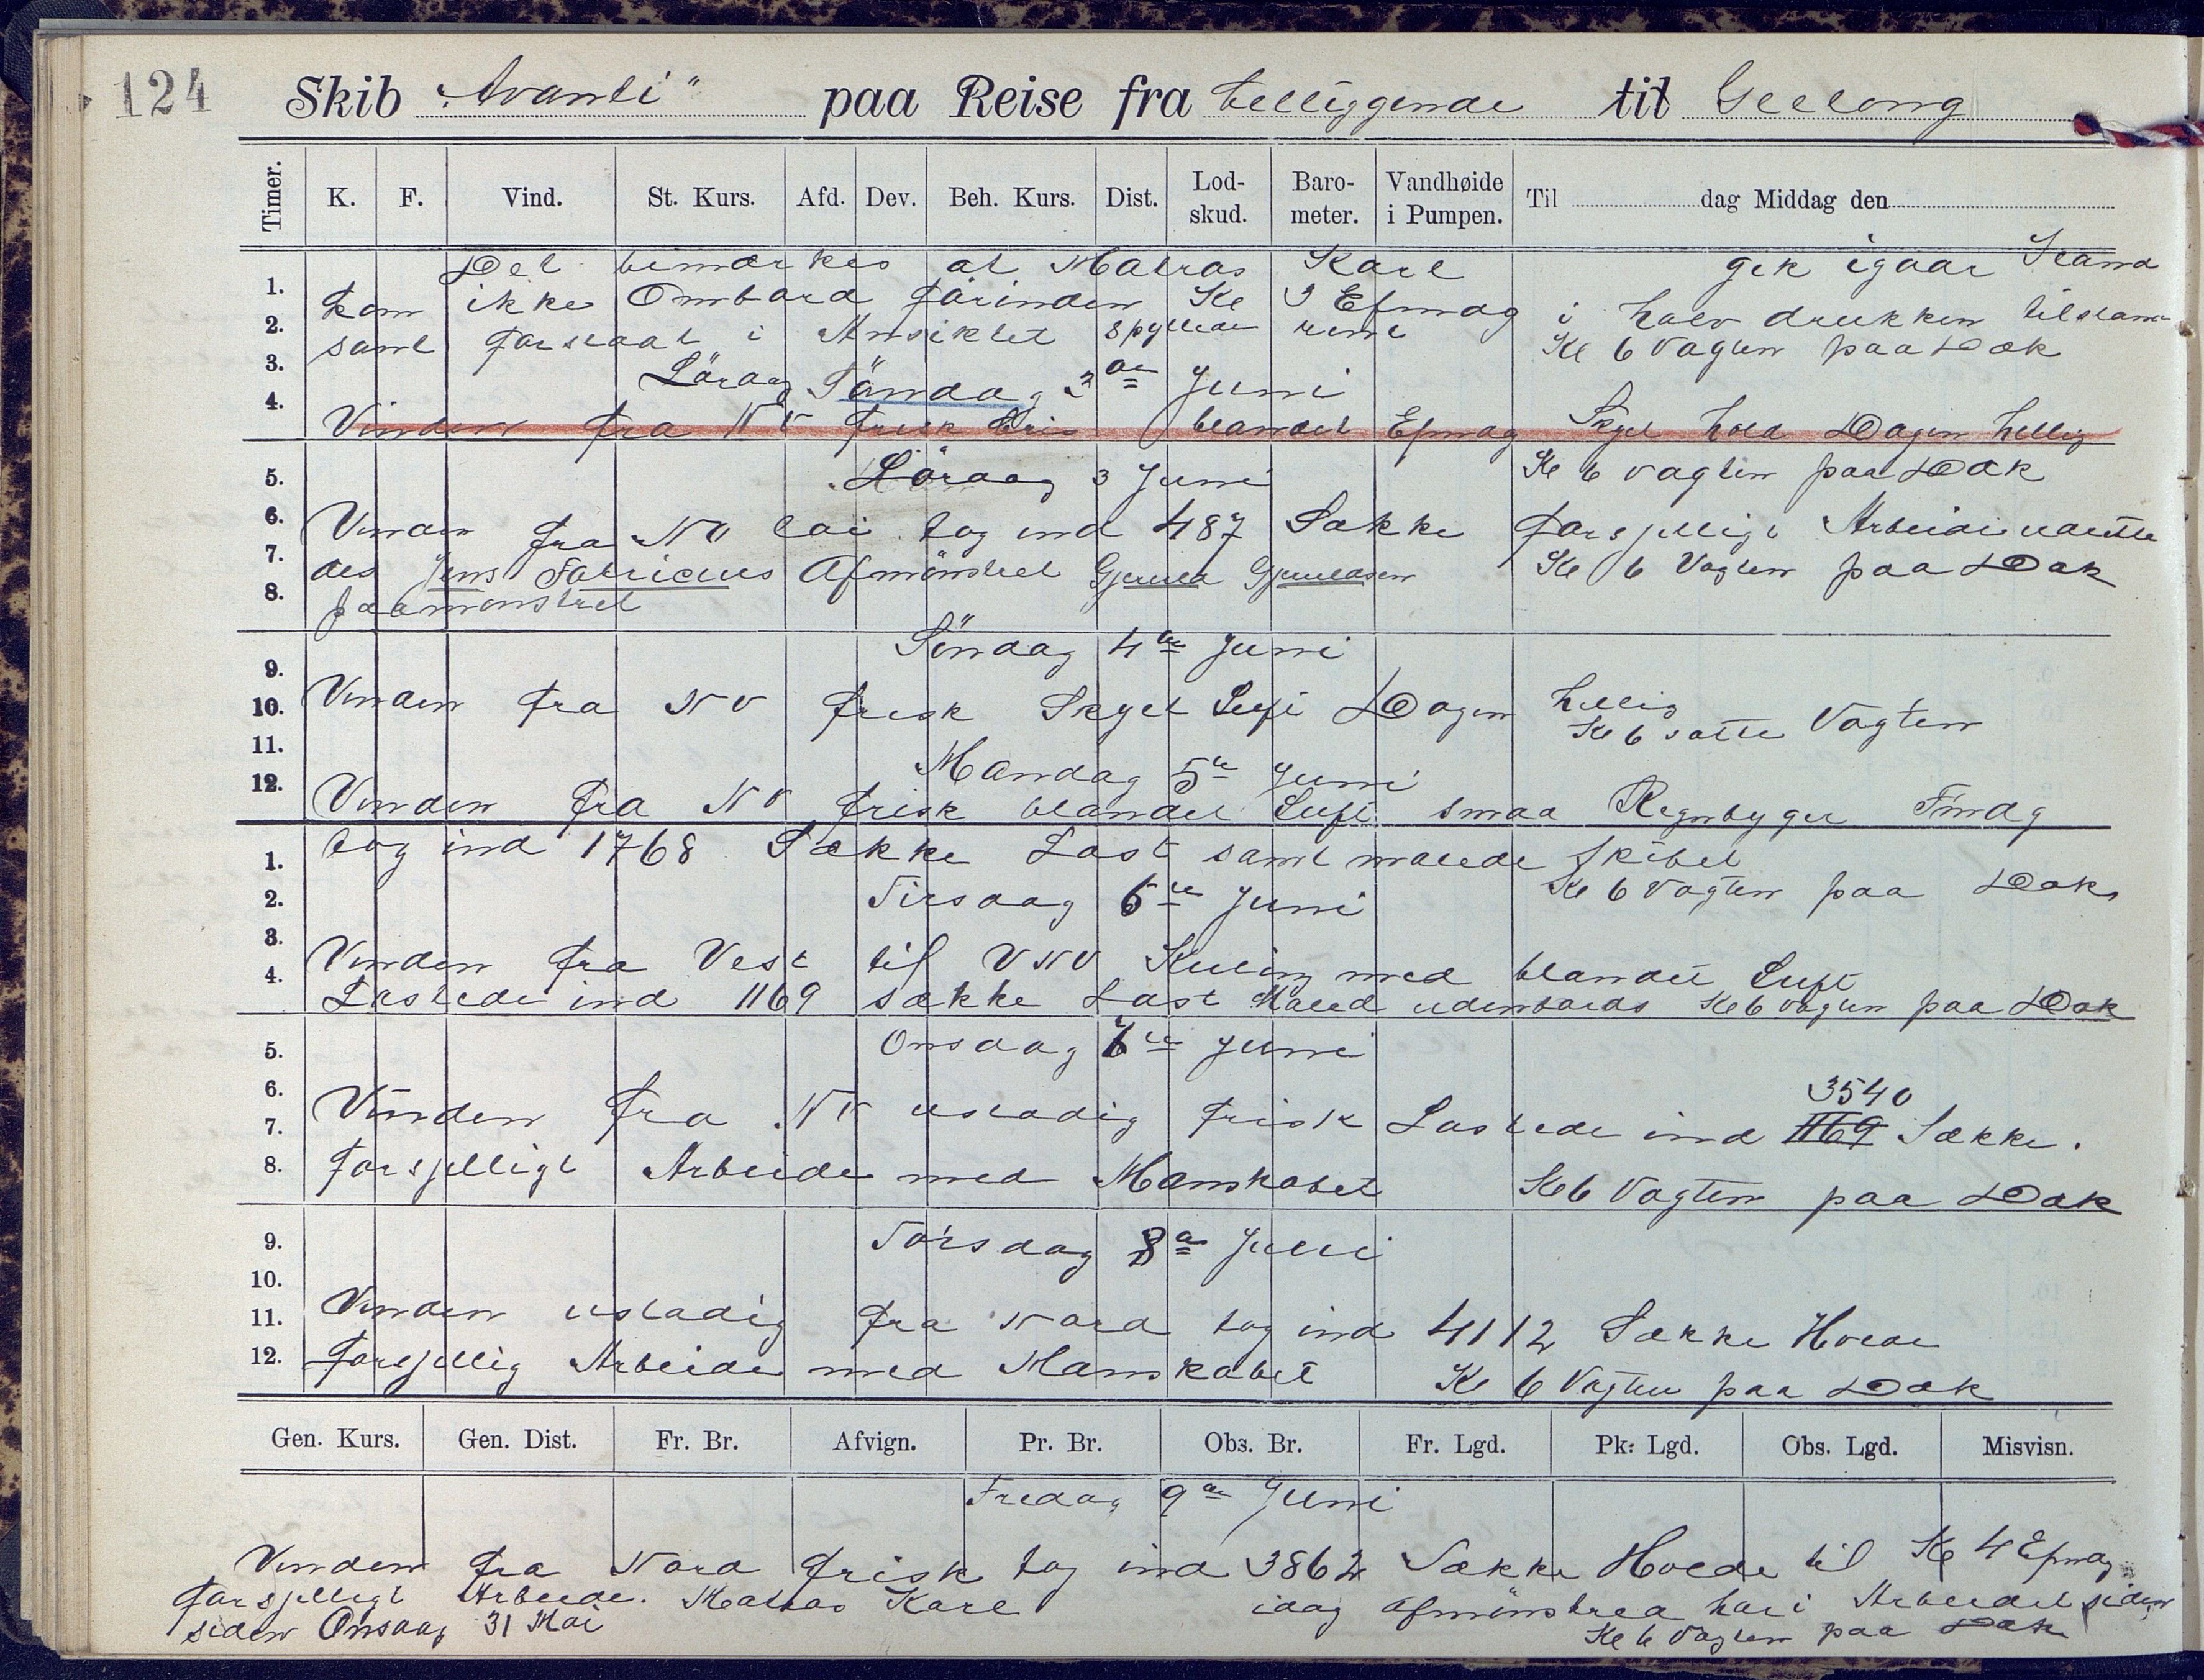 124
Skib "Avanti" paa Reise fra belliggende til Geelong
Timer. K. F. Vind. St. Kurs. Afd. Dev. Beh. Kurs. Dist. Lod-skud. Baro-meter. Vandhøide i Pumpen. Til dag Middag den
Det bemærkes at Matros Karl gik igaar Iland
1. kom ikke Ombord förinden Kl 3 Efmdg i halv drukken tilstand
2. samt forslaat i Ansiktet Kl 6 Vagten paa Dæk
3. Lördag Söndag 2den Juni
4. Vinden fra NV frisk blandet Efmdg Skyet hold Dagen hellig
5. Lördag 3 Juni Kl 6 vagten paa Dæk
6. Vinden fra NV tog ind 487 Sække forsjelligt Arbeide udrette
7. des Jens Fabricius Afmönstret Gjeruld Gjeruldsen Kl 6 Vagten paa Dæk
8. paamönstret
Söndag 4de Juni
9.
10. Vinden fra NV frisk Skyet Luft Dagen hellig
Kl 6 satte Vagten
11. Mandag 5te Juni
12. Vinden fra NV frisk blandet Luft smaa Regnbyger Fmdg
1. tog ind 1768 Sække Last samt malede skibet
2. Tirsdag 6te Juni Kl 6 vagten paa Dæk
3.
4. Vinden fra Vest til VNV Kuling med blandet Luft
Lastede ind 1169 sække Last Maled udenbords Kl 6 vagten paa Dæk
5. Onsdag 7de Juni
6. 3540
7. Vinden fra NV ustadig frisk Lastede ind 1169 Sække.
8. forsjelligt Arbeide med Manskabet Kl 6 Vagten paa Dæk
9. Torsdag 8de Juni
10.
11. Vinden ustadig fra Nord tog ind 4112 Sække Hvede
12. forsjellig Arbeide med Manskabet Kl 6 Vagten paa Dæk
Gen. Kurs. Gen. Dist. Fr. Br. Afvign. Pr. Br. Obs. Br. Fr. Lgd. Pk. Lgd. Obs. Lgd. Misvisn.
Fredag 9de Juni
Vinden fra Nord frisk tog ind 3862 Sække Hvede til Kl 4 Efmdg
forsjelligt Arbeide. Matros Karl idag afmönstred har i Arbeidet siden
siden Onsdag 31 Mai Kl 6 Vagten paa Dæk